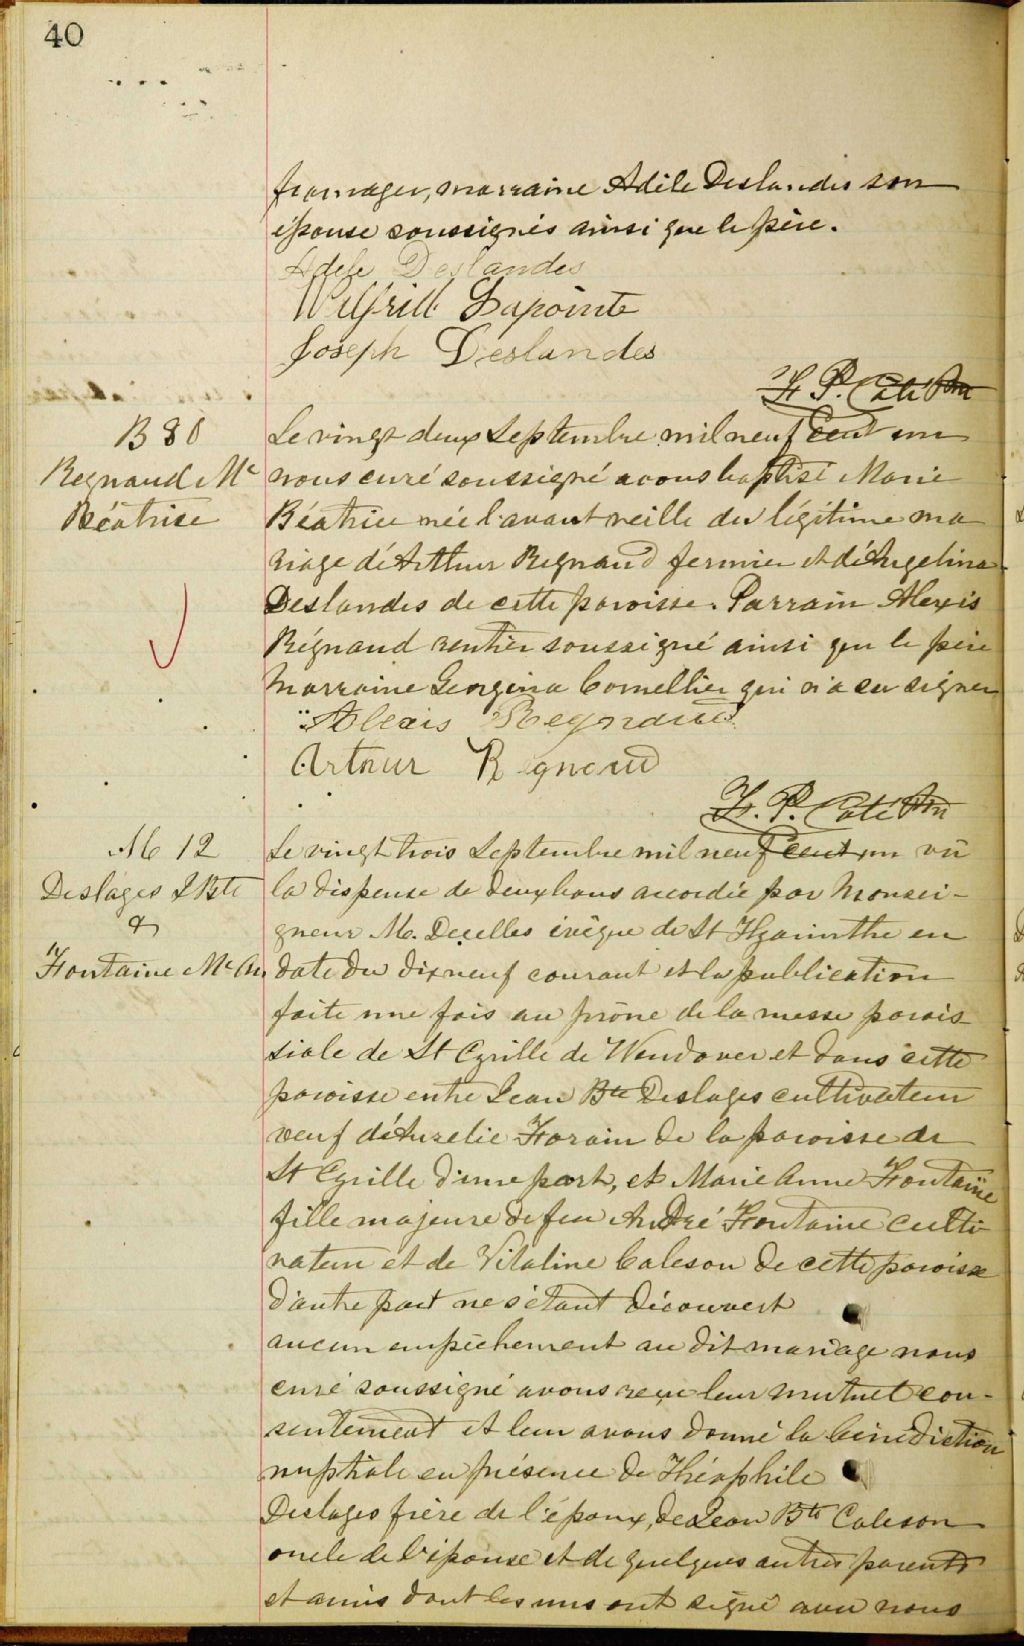 40
fromager, marraine Adèle Deslandes son
épouse soussignés ainsi que le père.
Adèle Deslandes
Wilfrid Lapointe
Joseph Deslandes
H. P. Coté Ptre
B 80
Regnaud Mie
Béatrice
Le vingt deux Septembre mil neuf cent un
nous curé soussigné avons baptisé Marie
Béatrice née l'avant veille du légitime ma
riage d'Arthur Regnaud fermier et d'Angelina
Deslandes de cette paroisse. Parrain Alexis
Régnaud rentier soussigné ainsi que le père
Marraine Georgina Cornellier qui n'a su signer
Alexis Regnaud
Artour Regnaud
H. P. Coté Ptre
M 12
Deslages J Bte
&
Fontaine Mie An
Le vingt trois Septembre mil neuf cent un vû
la dispense de deux bans accordée par Monsei-
gneur M. Decelles évêque de St Hyacinthe en
date du dix neuf courant et la publication
faite une fois au prône de la messe parois
siale de St Cyrille de Wendover et dans cette
paroisse entre Jean Bte Deslages cultivateur
veuf d'Aurelie Forain de la paroisse de
St Cyrille d'une part, et Marie Anne Fontaine
fille majeure de feu André Fontaine culti
vateur et de Vitaline Caleson de cette paroisse
d'autre part ne s'étant découvert
aucun empêchement au dit mariage nous
curé soussigné avons reçu leur mutuel con-
sentement et leur avons donné la bénédiction
nuptiale en présence de Théophile
Deslages frère de l'époux, de Jean Bte Caleson
oncle de l'épouse et de quelques autres parents
et amis dont les uns ont signé avec nous